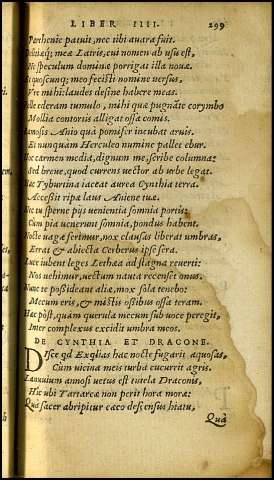 LIBER IIII. 299
Parthenie patuit, nec tibi auara fuit.
Deliciæq; meæ Latris, cui nomen ab usu est,
Ne speculum dominæ porrigat illa nouæ.
Et quoscunq; meo fecisti nomine uersus,
Vre mihi: laudes desine habere meas.
Pelle ederam tumulo, mihi quæ pugnāte corymbo
Mollia contortis alligat ossa comis.
Ramosis Anio quà pomifer incubat aruis.
Et nunquam Herculeo numine pallet ebur.
Hoc carmen media, dignum me, scribe columna:
Sed breue, quod currens uector ab urbe legat.
Hac Tyburina iacet aurea Cynthia terra.
Accessit ripæ laus Aniene tuæ.
Nec tu sperne pijs uenientia somnia portis:
Cum pia uenerunt somnia, pondus habent.
Nocte uagæ ferimur, nox clausas liberat umbras,
Errat & abiecta Cerberus ipse sera.
Luce iubent leges Lethæa ad stagna reuerti:
Nos uehimur, uectum nauta recenset onus.
Nunc te possideant aliæ, mox sola tenebo:
Mecum eris, & mistis ossibus ossa teram.
Hæc pòst, quàm querula mecum sub uoce peregit,
Inter complexus excidit umbra meos.
DE CYNTHIA ET DRACONE.
Disce qd Exqlias hac nocte fugarit aquosas,
Cum uicina meis turba cucurrit agris.
Lanuuium annosi uetus est tutela Draconis,
Hic ubi Tartareæ non perit hora moræ:
Quà sacer abripitur cæco descensus hiatu,
Quà